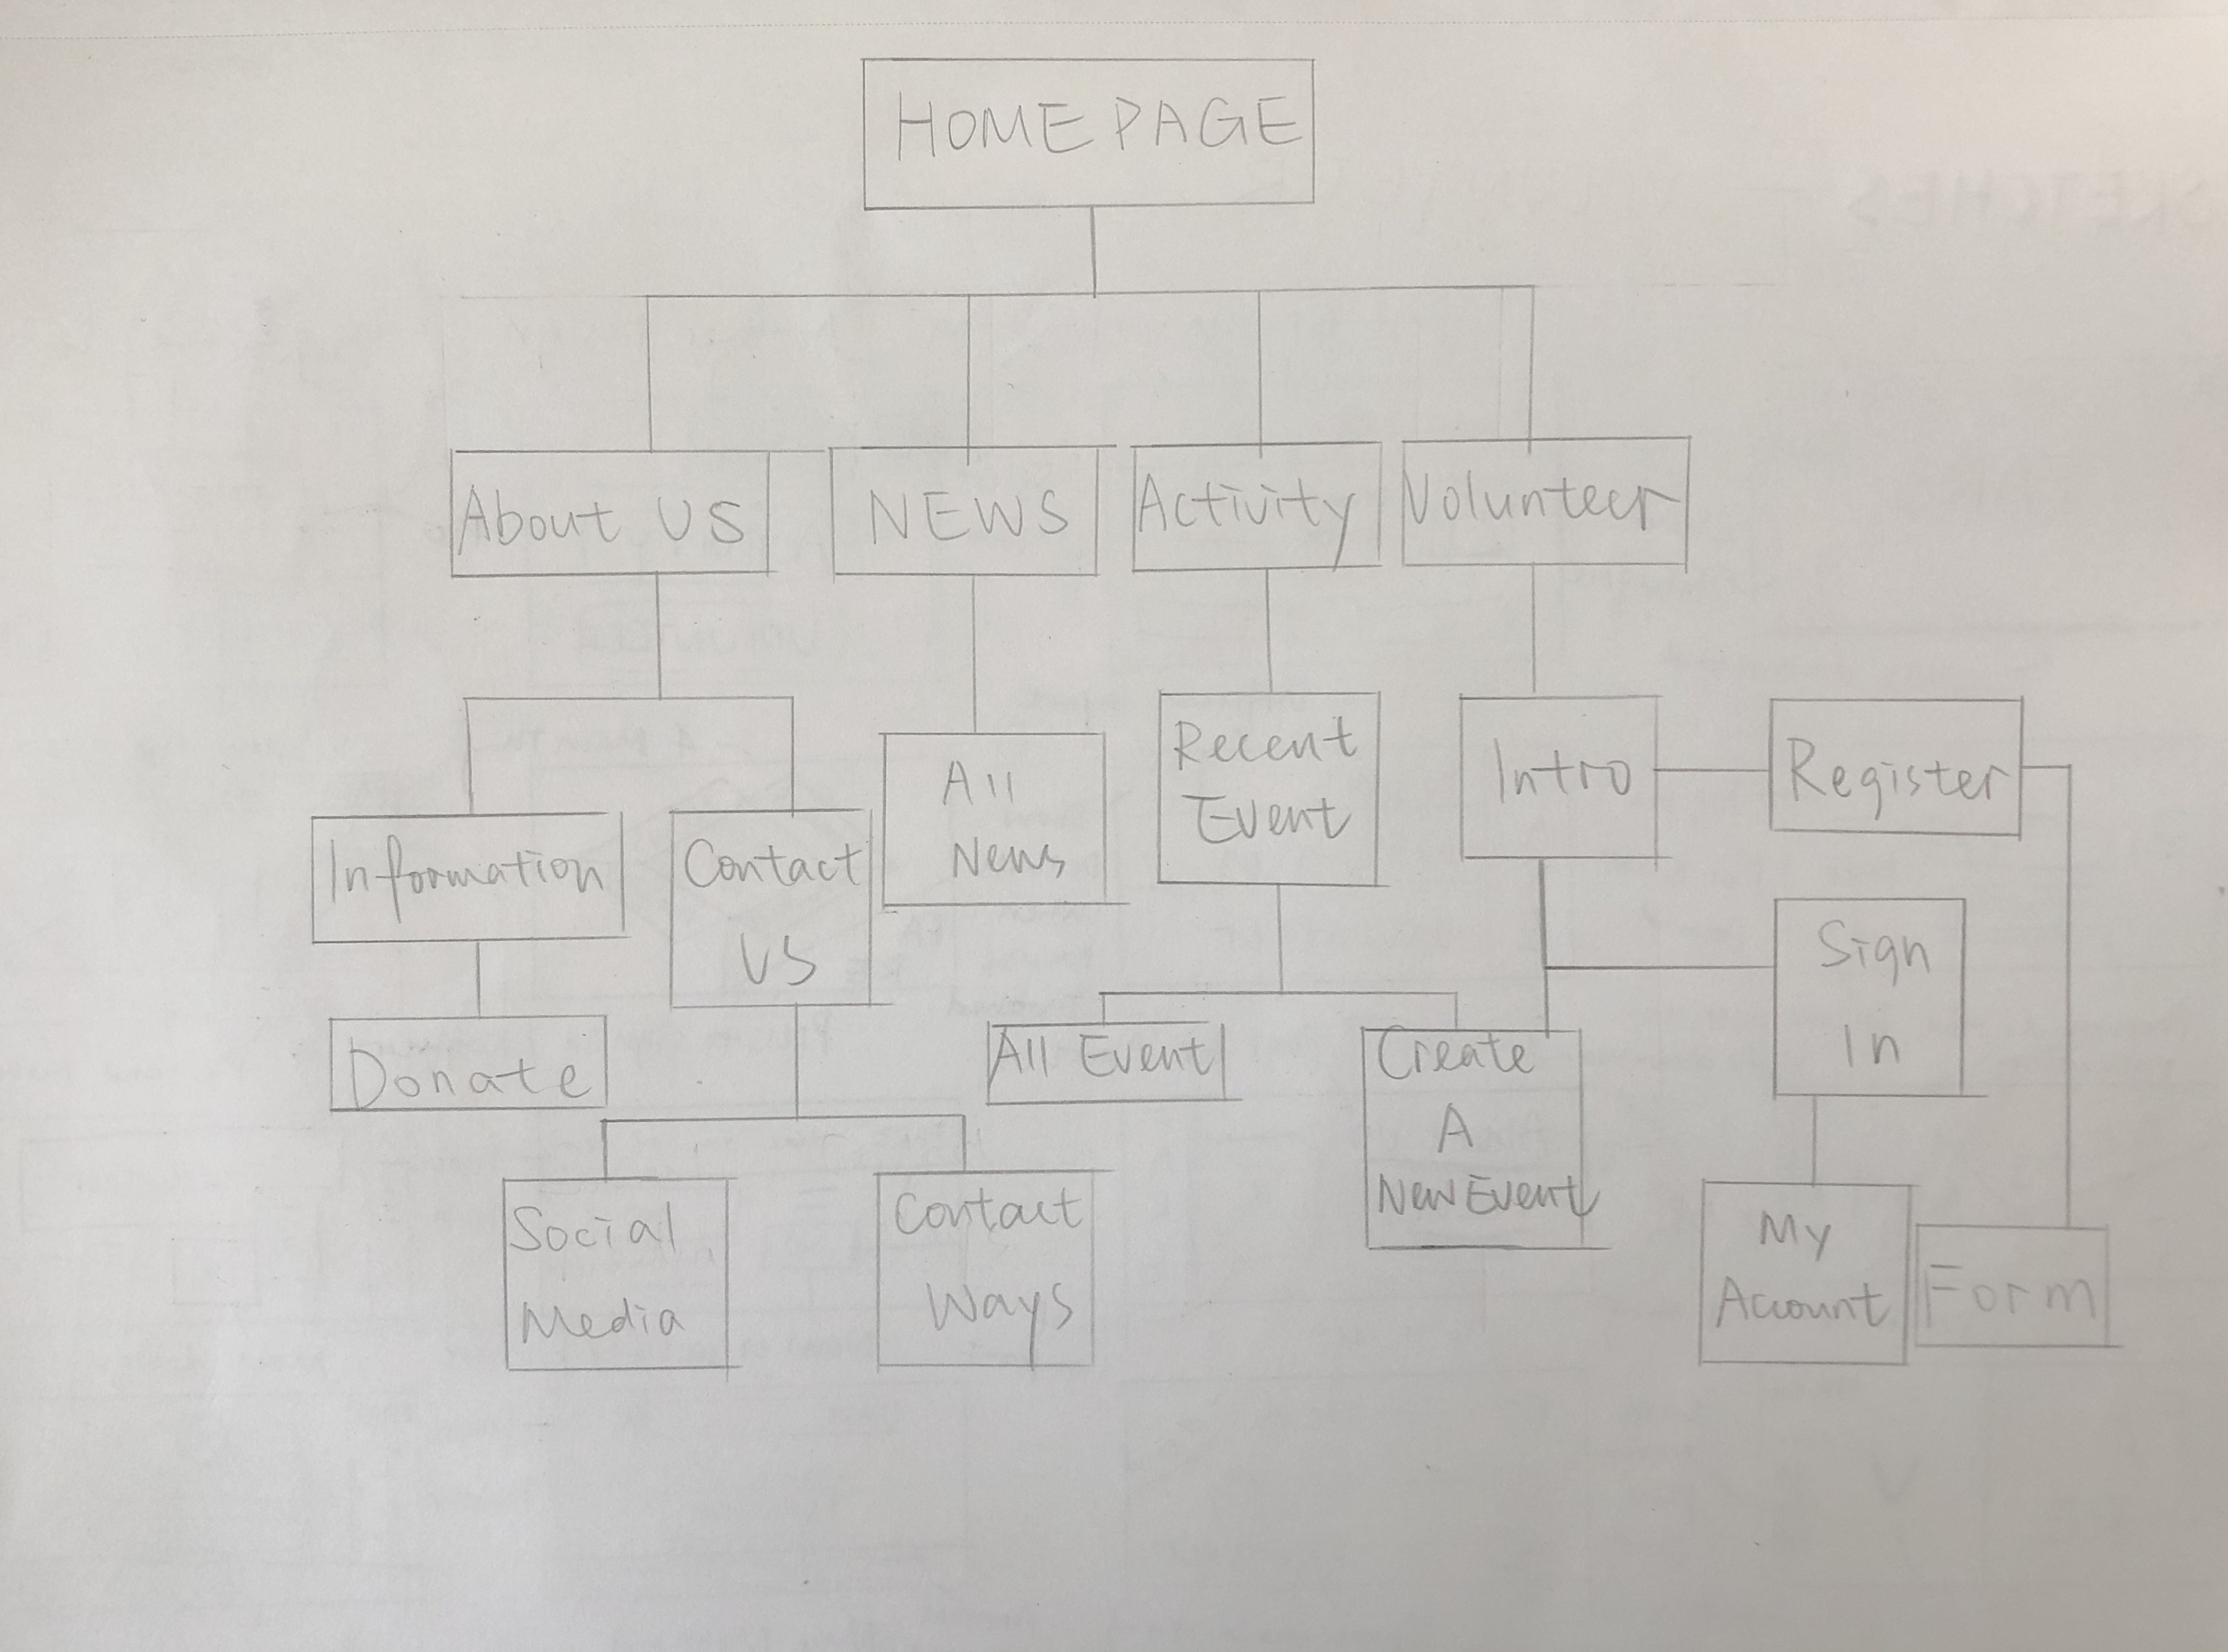 HOMEPAGE
About US
NEWS
Activity
Volunteer
Information
Contact
US
All
News
Recent
Event
Intro
Register
Donate
All Event
Create
A
New Event
Sign
In
Social
Media
Contact
Ways
My
Account
Form
SKETCHES